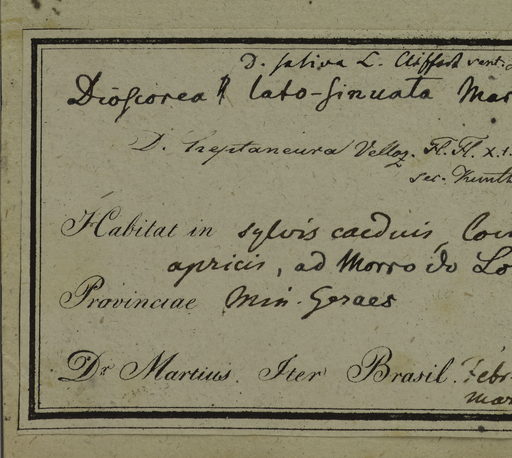 D. sativa L. Cliffort
Dioscorea lato-sinuata Mar
D. heptaneura Velloz. Fl. Fl. X. t.
sec. Kunth
Habitat in sylvis caeduis
apricis, ad Morro do Lo
Provinciae Min. Geraes
Dr. Martius. Iter Brasil. Febr
Mar